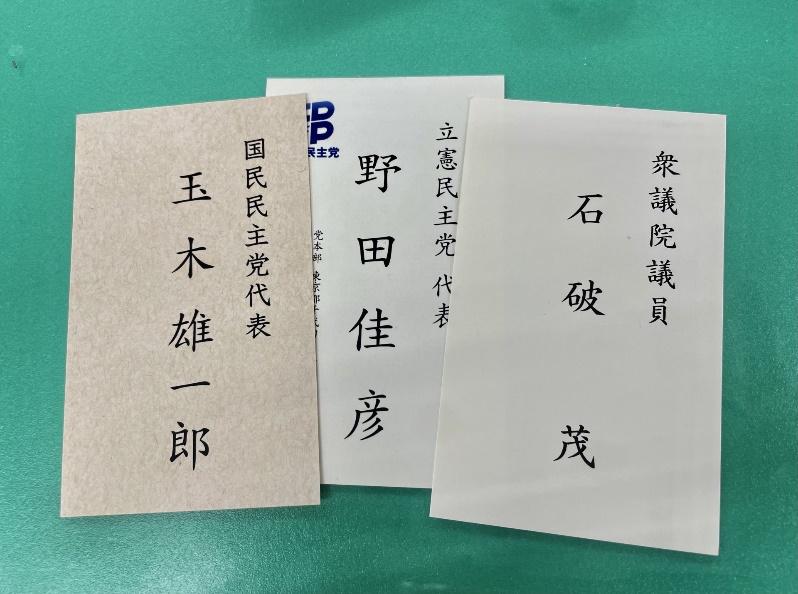 国民民主党代表
玉木雄一郎
民主党
立憲民主党 代表
野田佳彦
党本部 東京都千代
衆議院議員
石破 茂